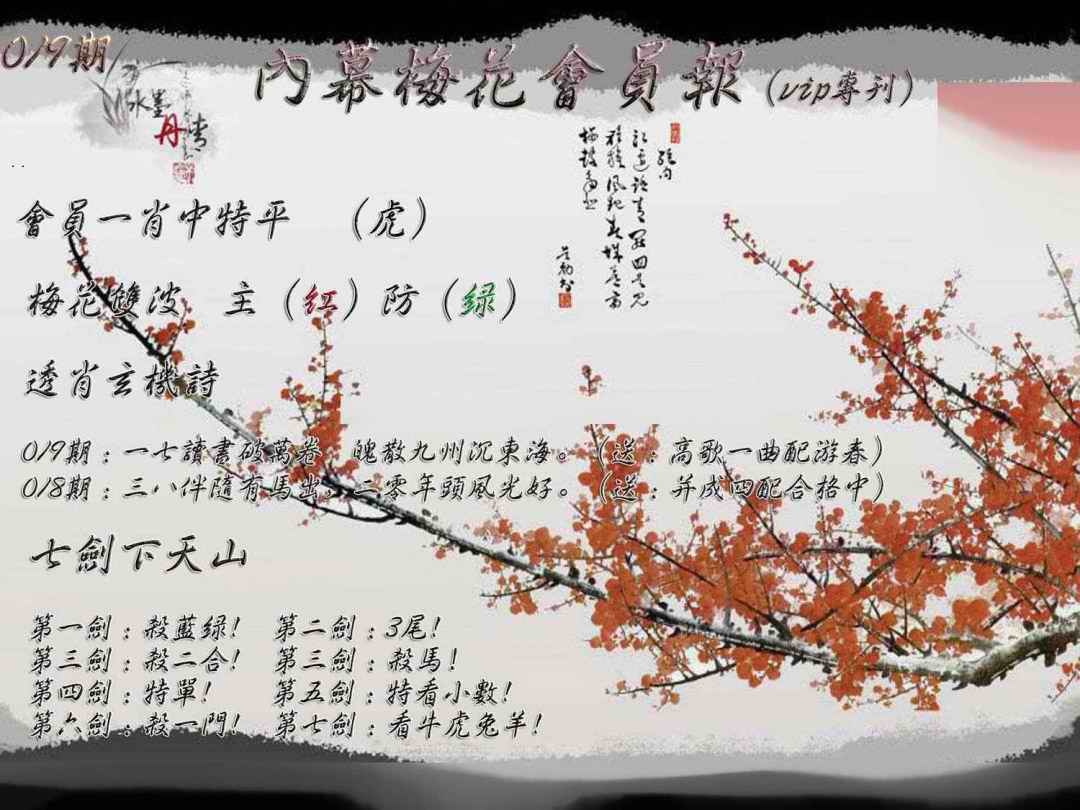 019期
內幕梅花會員報(vip專刊)
水墨
丹青
會員一肖中特平 (虎)
梅花雙波 主(红)防(绿)
透肖玄機詩
019期:一七讀書破萬卷 魄散九州沉東海。(送:高歌一曲配游春)
018期:三八伴隨有馬出,二零年頭風光好。(送:并成四配合格中)
七劍下天山
第一劍:殺藍绿! 第二劍:3尾!
第三劍:殺二合! 第三劍:殺馬!
第四劍:特單! 第五劍:特看小數!
第六劍:殺一門! 第七劍:看牛虎兔羊!